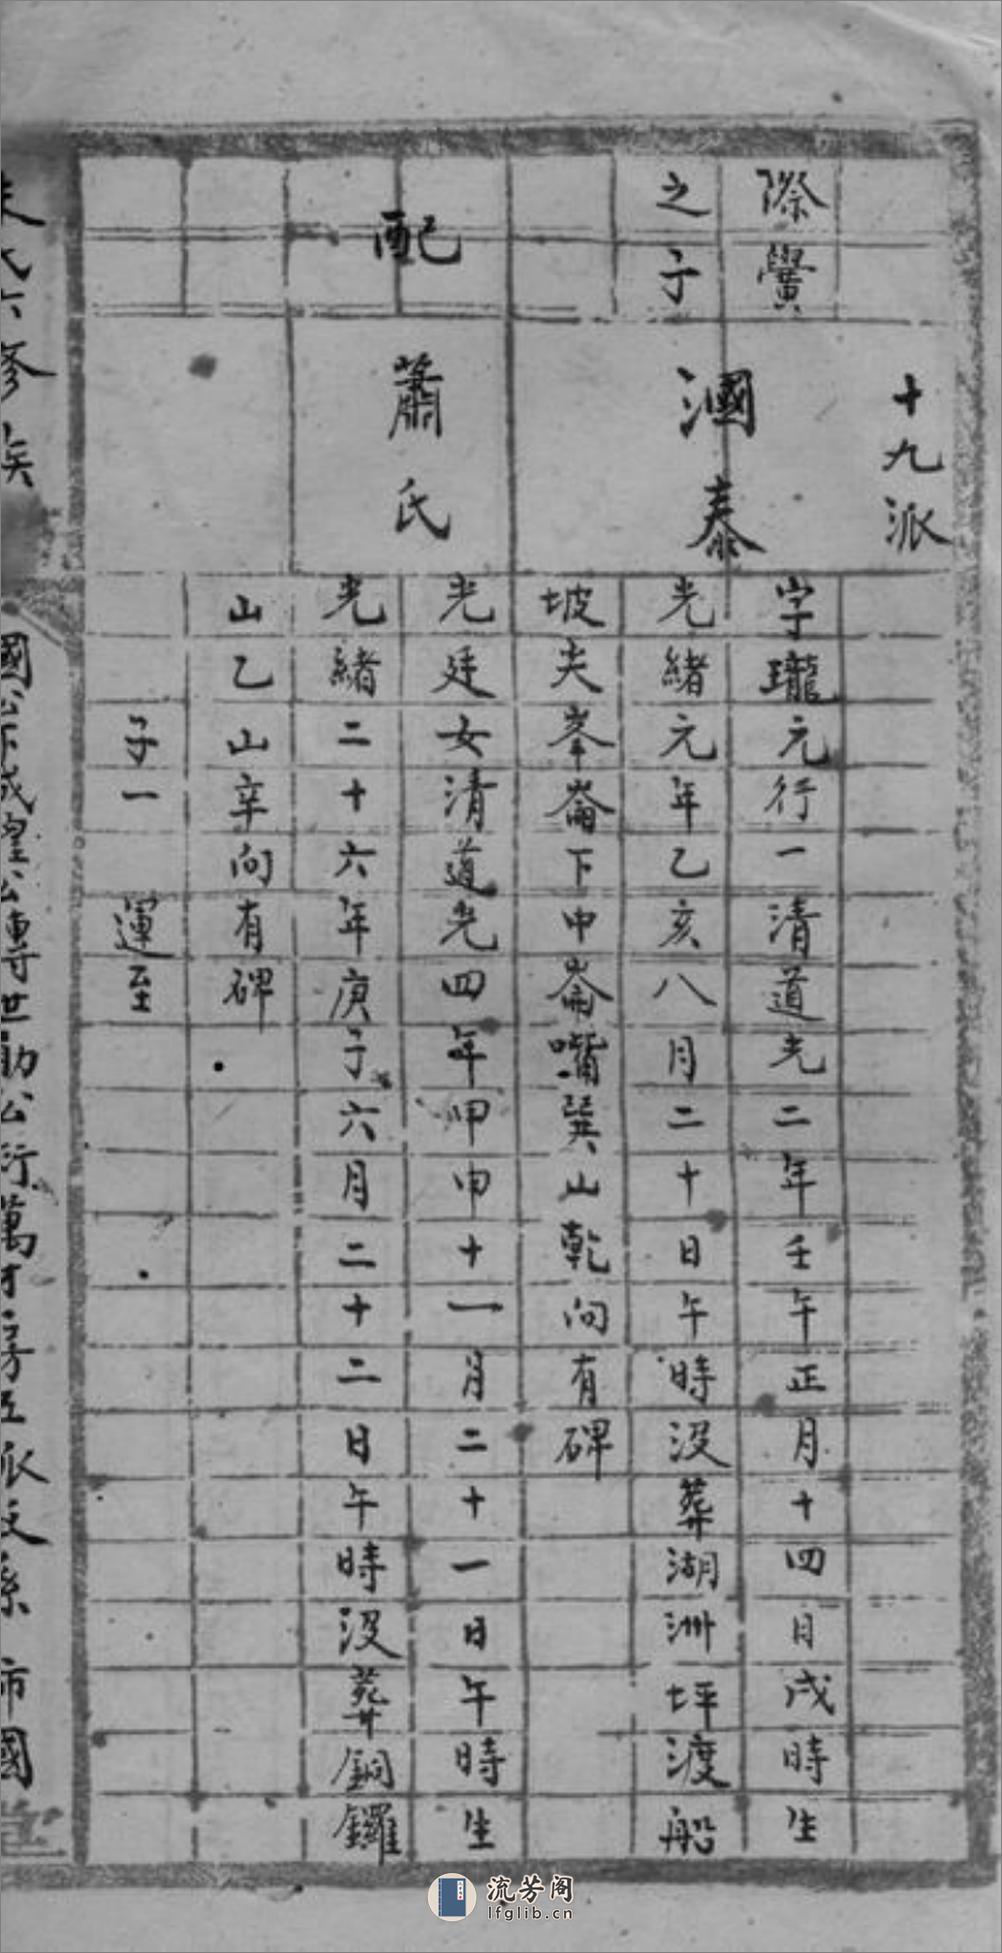 十九派
際黌
之子
漍泰
字瓏元行一清道光二年壬午正月十四月戌時生
光緒元年乙亥八月二十日午時没葬湖洲坪渡船
坡夹峯崙下中崙嘴巽山乾向有碑
配
蕭氏
光廷女清道光四年甲申十一月二十一日午時生
光緒二十六年庚子六月二十二日午時没葬銅鑼
山乙山辛向有碑
子一 運至
六修族
國
公專世勛公行萬才房五派支系 沛國堂
流芳阁
lfglib.cn